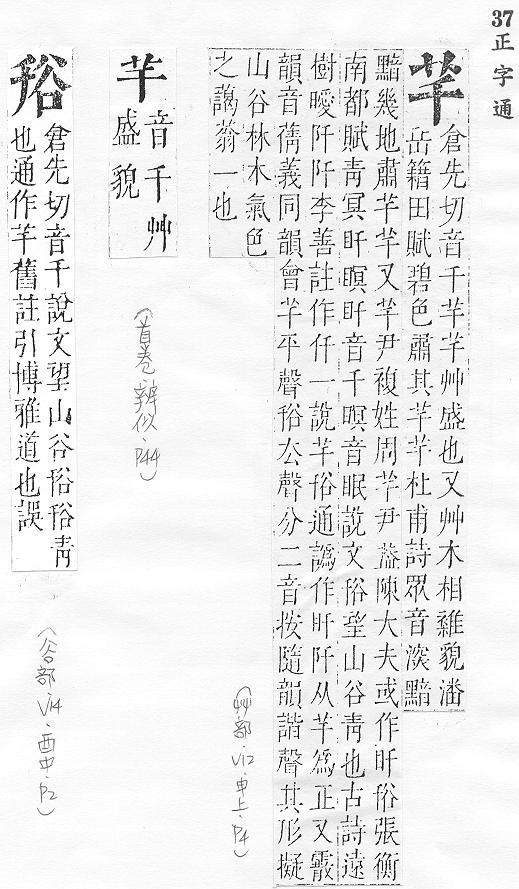 37 正字通
芊
倉先切音千芊芊艸盛也又艸木相雜貌潘
岳籍田賦碧色肅其芊芊杜甫詩眾音淡黯
黯幾地肅芊芊又芊尹複姓周芊尹葢陳大夫或作旰谸張衡
南都賦青冥旰瞑旰音千瞑音眠說文谸望山谷青也古詩遠
樹曖阡阡李善註作仟一說芊谸通譌作旰阡从芊為正又霰
韻音義同韻會芊平聲谸厺聲分二音按隨韻諧聲其形擬
山谷林木氣色
之藹蓊一也
(艸部.V12.申上.P4)
芊
音千艸
盛貌
(首卷辨似.P44)
谸
倉先切音千說文望山谷谸谸青
也通作芊舊註引博雅道也誤
(谷部.V14.酉中.P2)